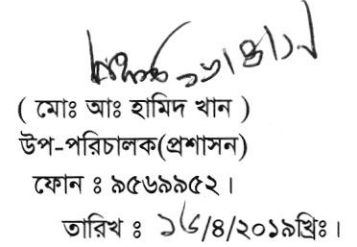 ১৬/৪/১৯
( মোঃ আঃ হামিদ খান )
উপ-পরিচালক(প্রশাসন)
ফোন ঃ ৯৫৬৯৯৫২।
তারিখ ঃ ১৬/৪/২০১৯খ্রিঃ।